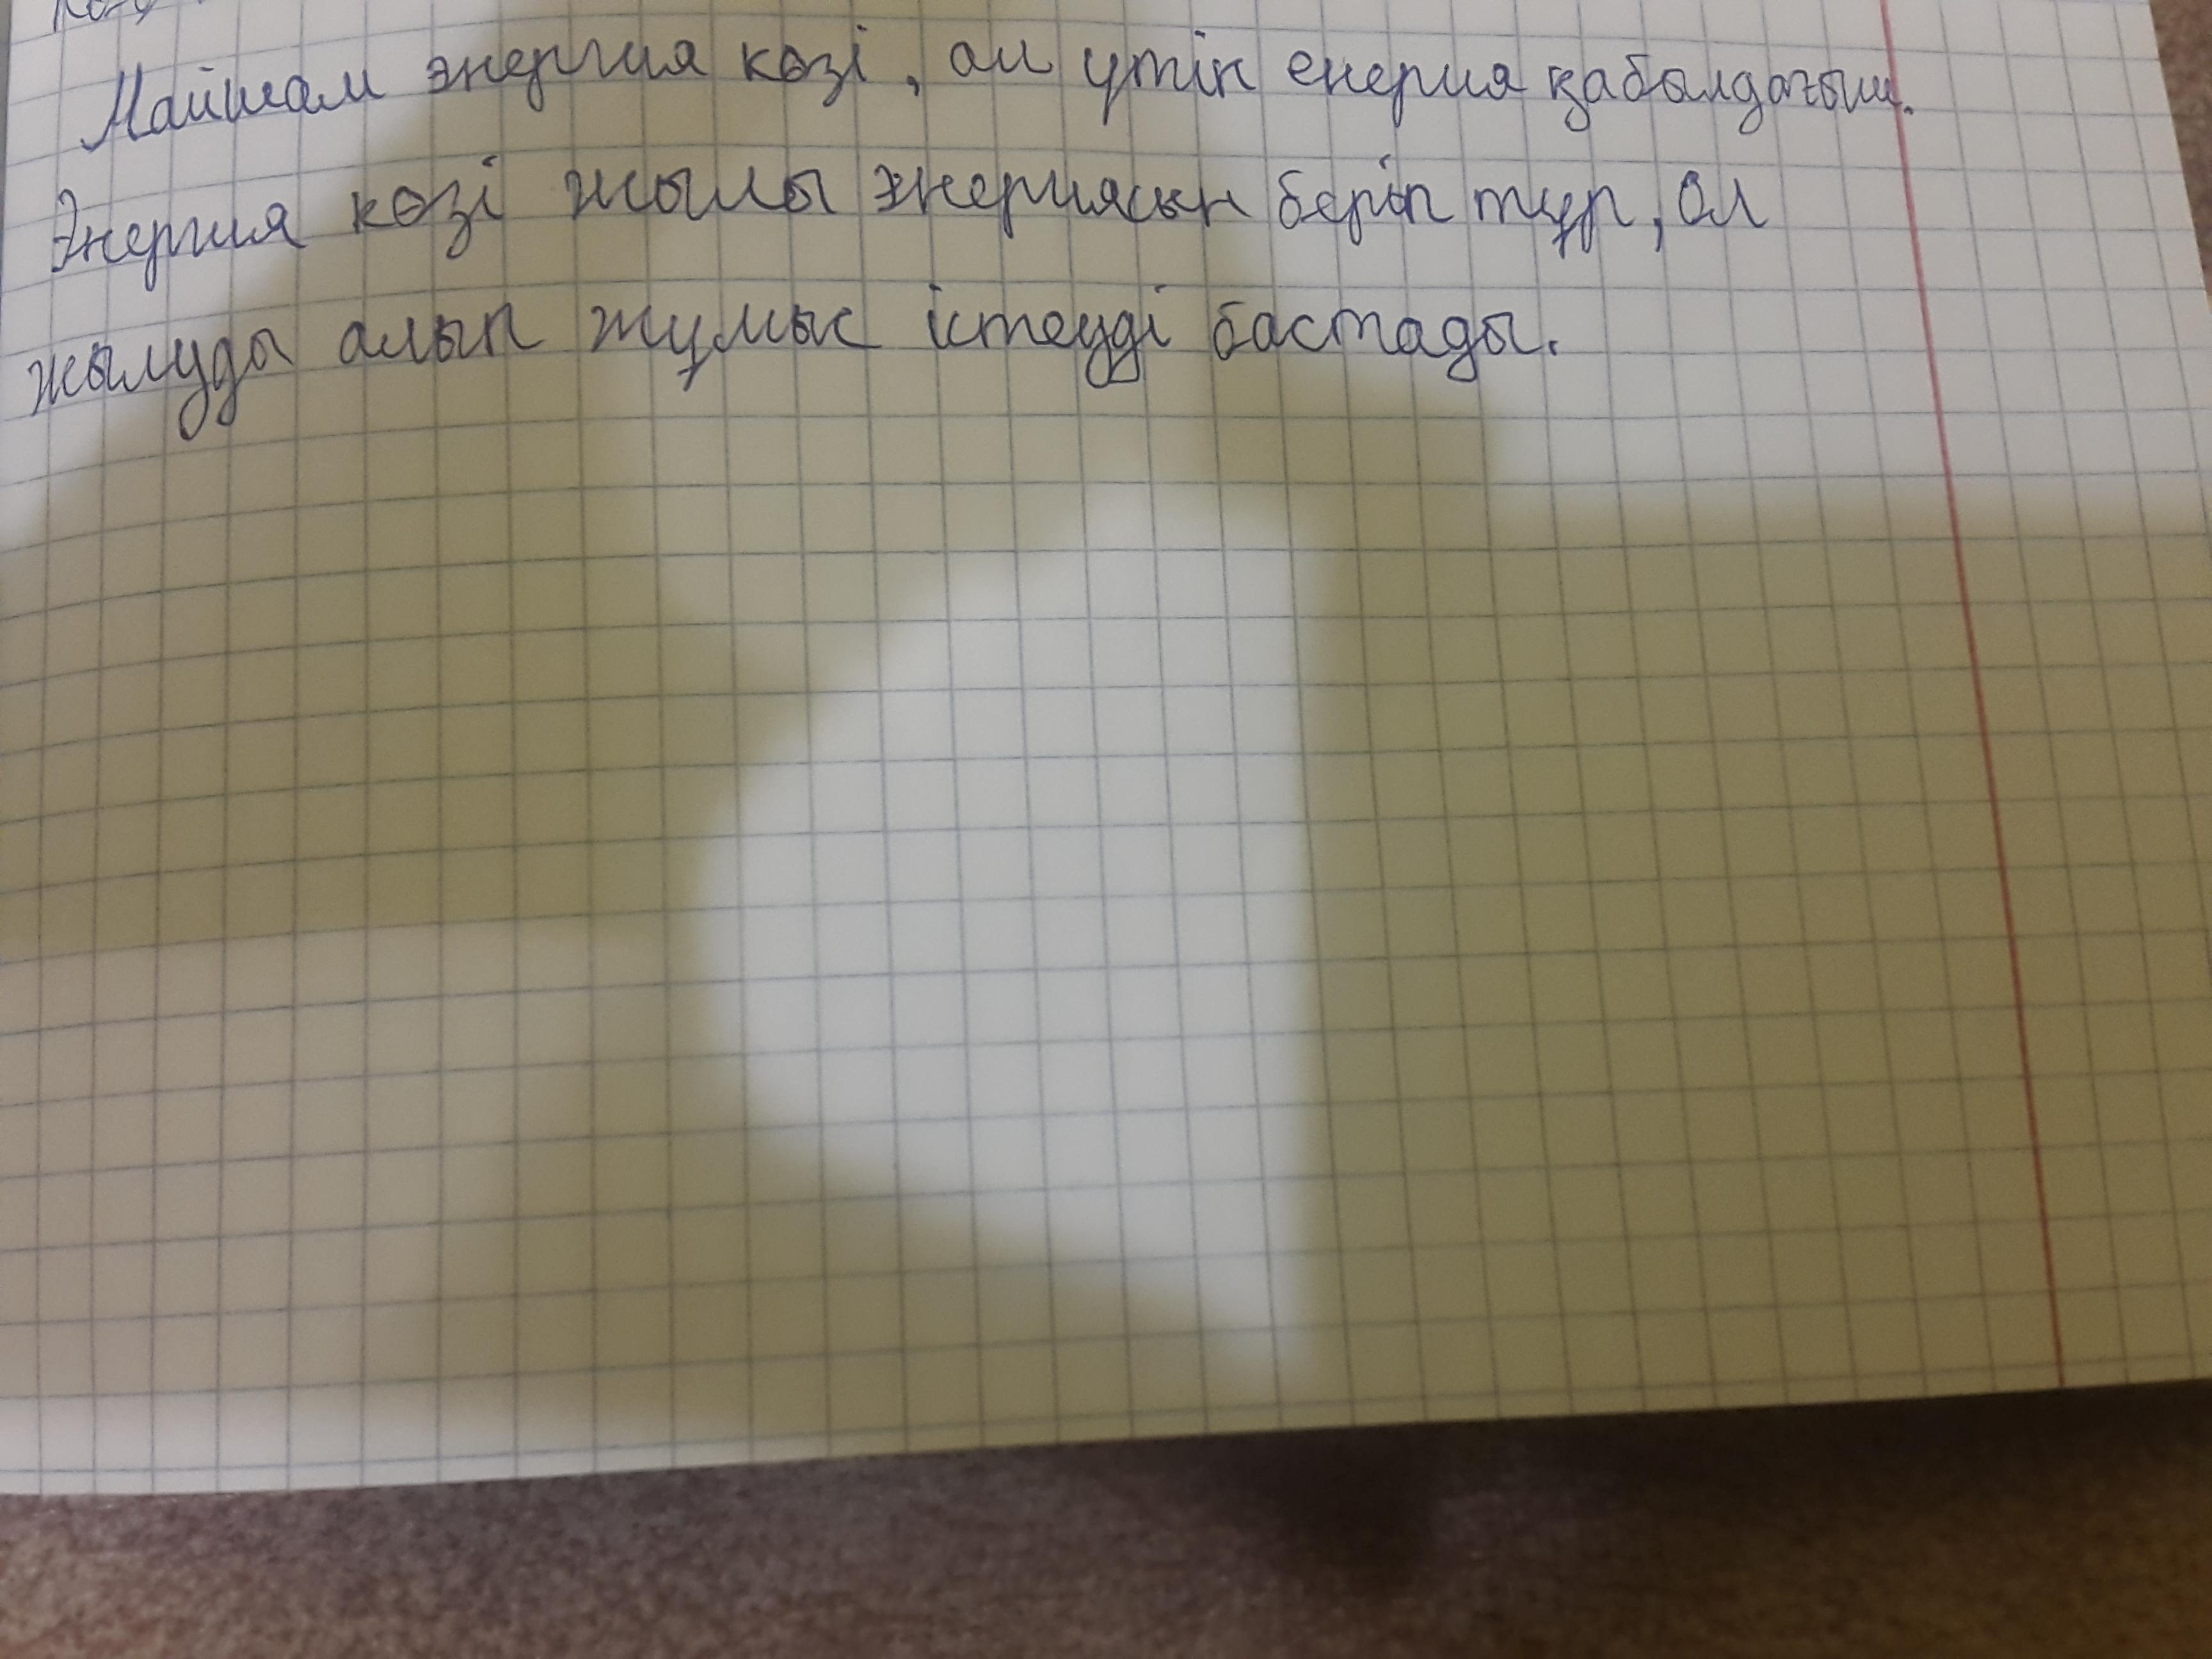 Майшам энергия көзі, ал үтік енергия қабылдағыш.
Энергия көзі жылы энергиясын беріп тұр, Ол
жылуды алып жұмыс істеуді бастады.